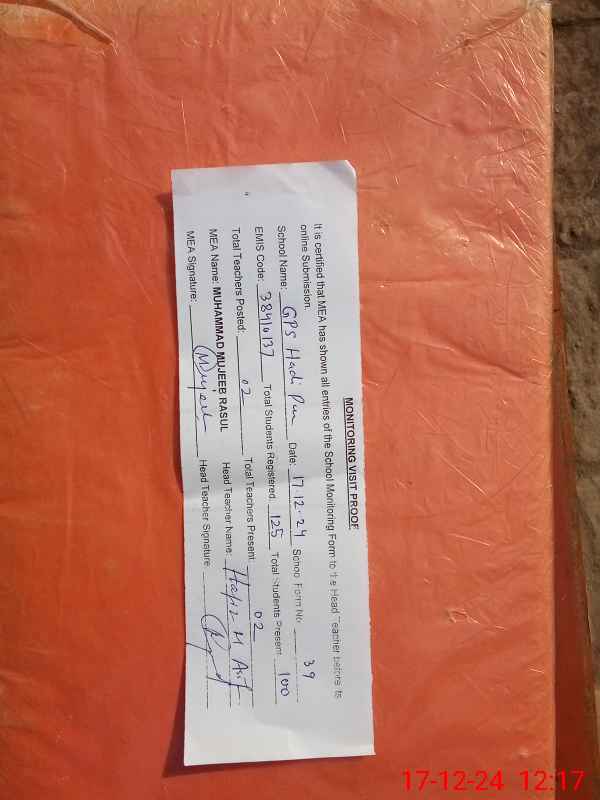 MONITORING VISIT PROOF
It is certified that MEA has shown all entries of the School Monitoring Form to the Head Teacher before its
online Submission.
School Name: GPS Hadi Pur Date: 17.12.24 School Form No: 39
EMIS Code: 38410137 Total Students Registered: 125 Total Students Present 100
Total Teachers Posted: 02 Total Teachers Present: 02
MEA Name: MUHAMMAD MUJEEB RASUL Head Teacher Name: Hafiz M Asif
MEA Signature: Mujeeb Head Teacher Signature
17-12-24 12:17